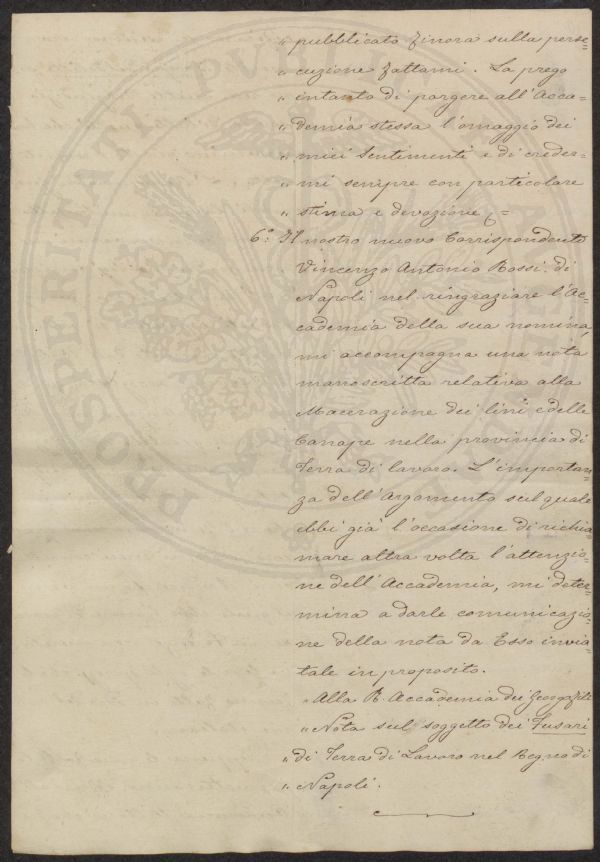 " pubblicato finora sulla perse=
" cuzione fattami. La prego
" intanto di porgere all'Acca=
" demia stessa l'omaggio dei
" miei Sentimenti e di creder=
" mi sempre con particolare
" stima e devozione =
6.° Il nostro nuovo Corrispondente
Vincenzo Antonio Rossi di
Napoli nel ringraziare l'Ac=
cademia della sua nomina,
mi accompagna una nota
manoscritta relativa alla
Macerazione dei lini e delle
Canape nella provincia di
Terra di lavoro. L'importan=
za dell'Argomento sul quale
ebbi già l'occasione di richia=
mare altra volta l'attenzio=
ne dell'Accademia, mi deter=
mina a darle comunicazio=
ne della nota da Esso invia=
tale in proposito.
" Alla R. Accademia dei Georgofili
" Nota sul soggetto dei Fusari
" di Terra di Lavoro nel Regno di
" Napoli.
PROSPERITATI PVB AVGE